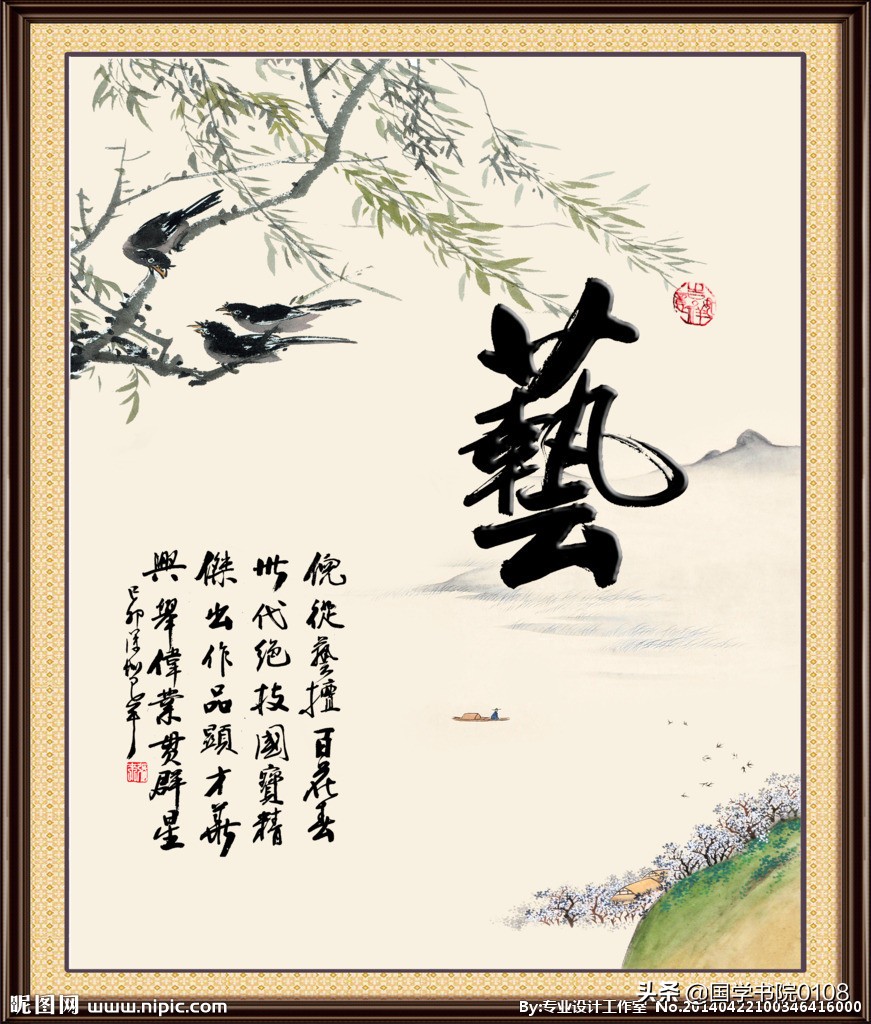 藝
倪從藝擅百花春
世代絕技國寶精
傑出作品顯才華
興舉偉業貫群星
己卯深圳
头条 @国学书院0108
昵图网 www.nipic.com
By:专业设计工作室 No.20140422100346416000